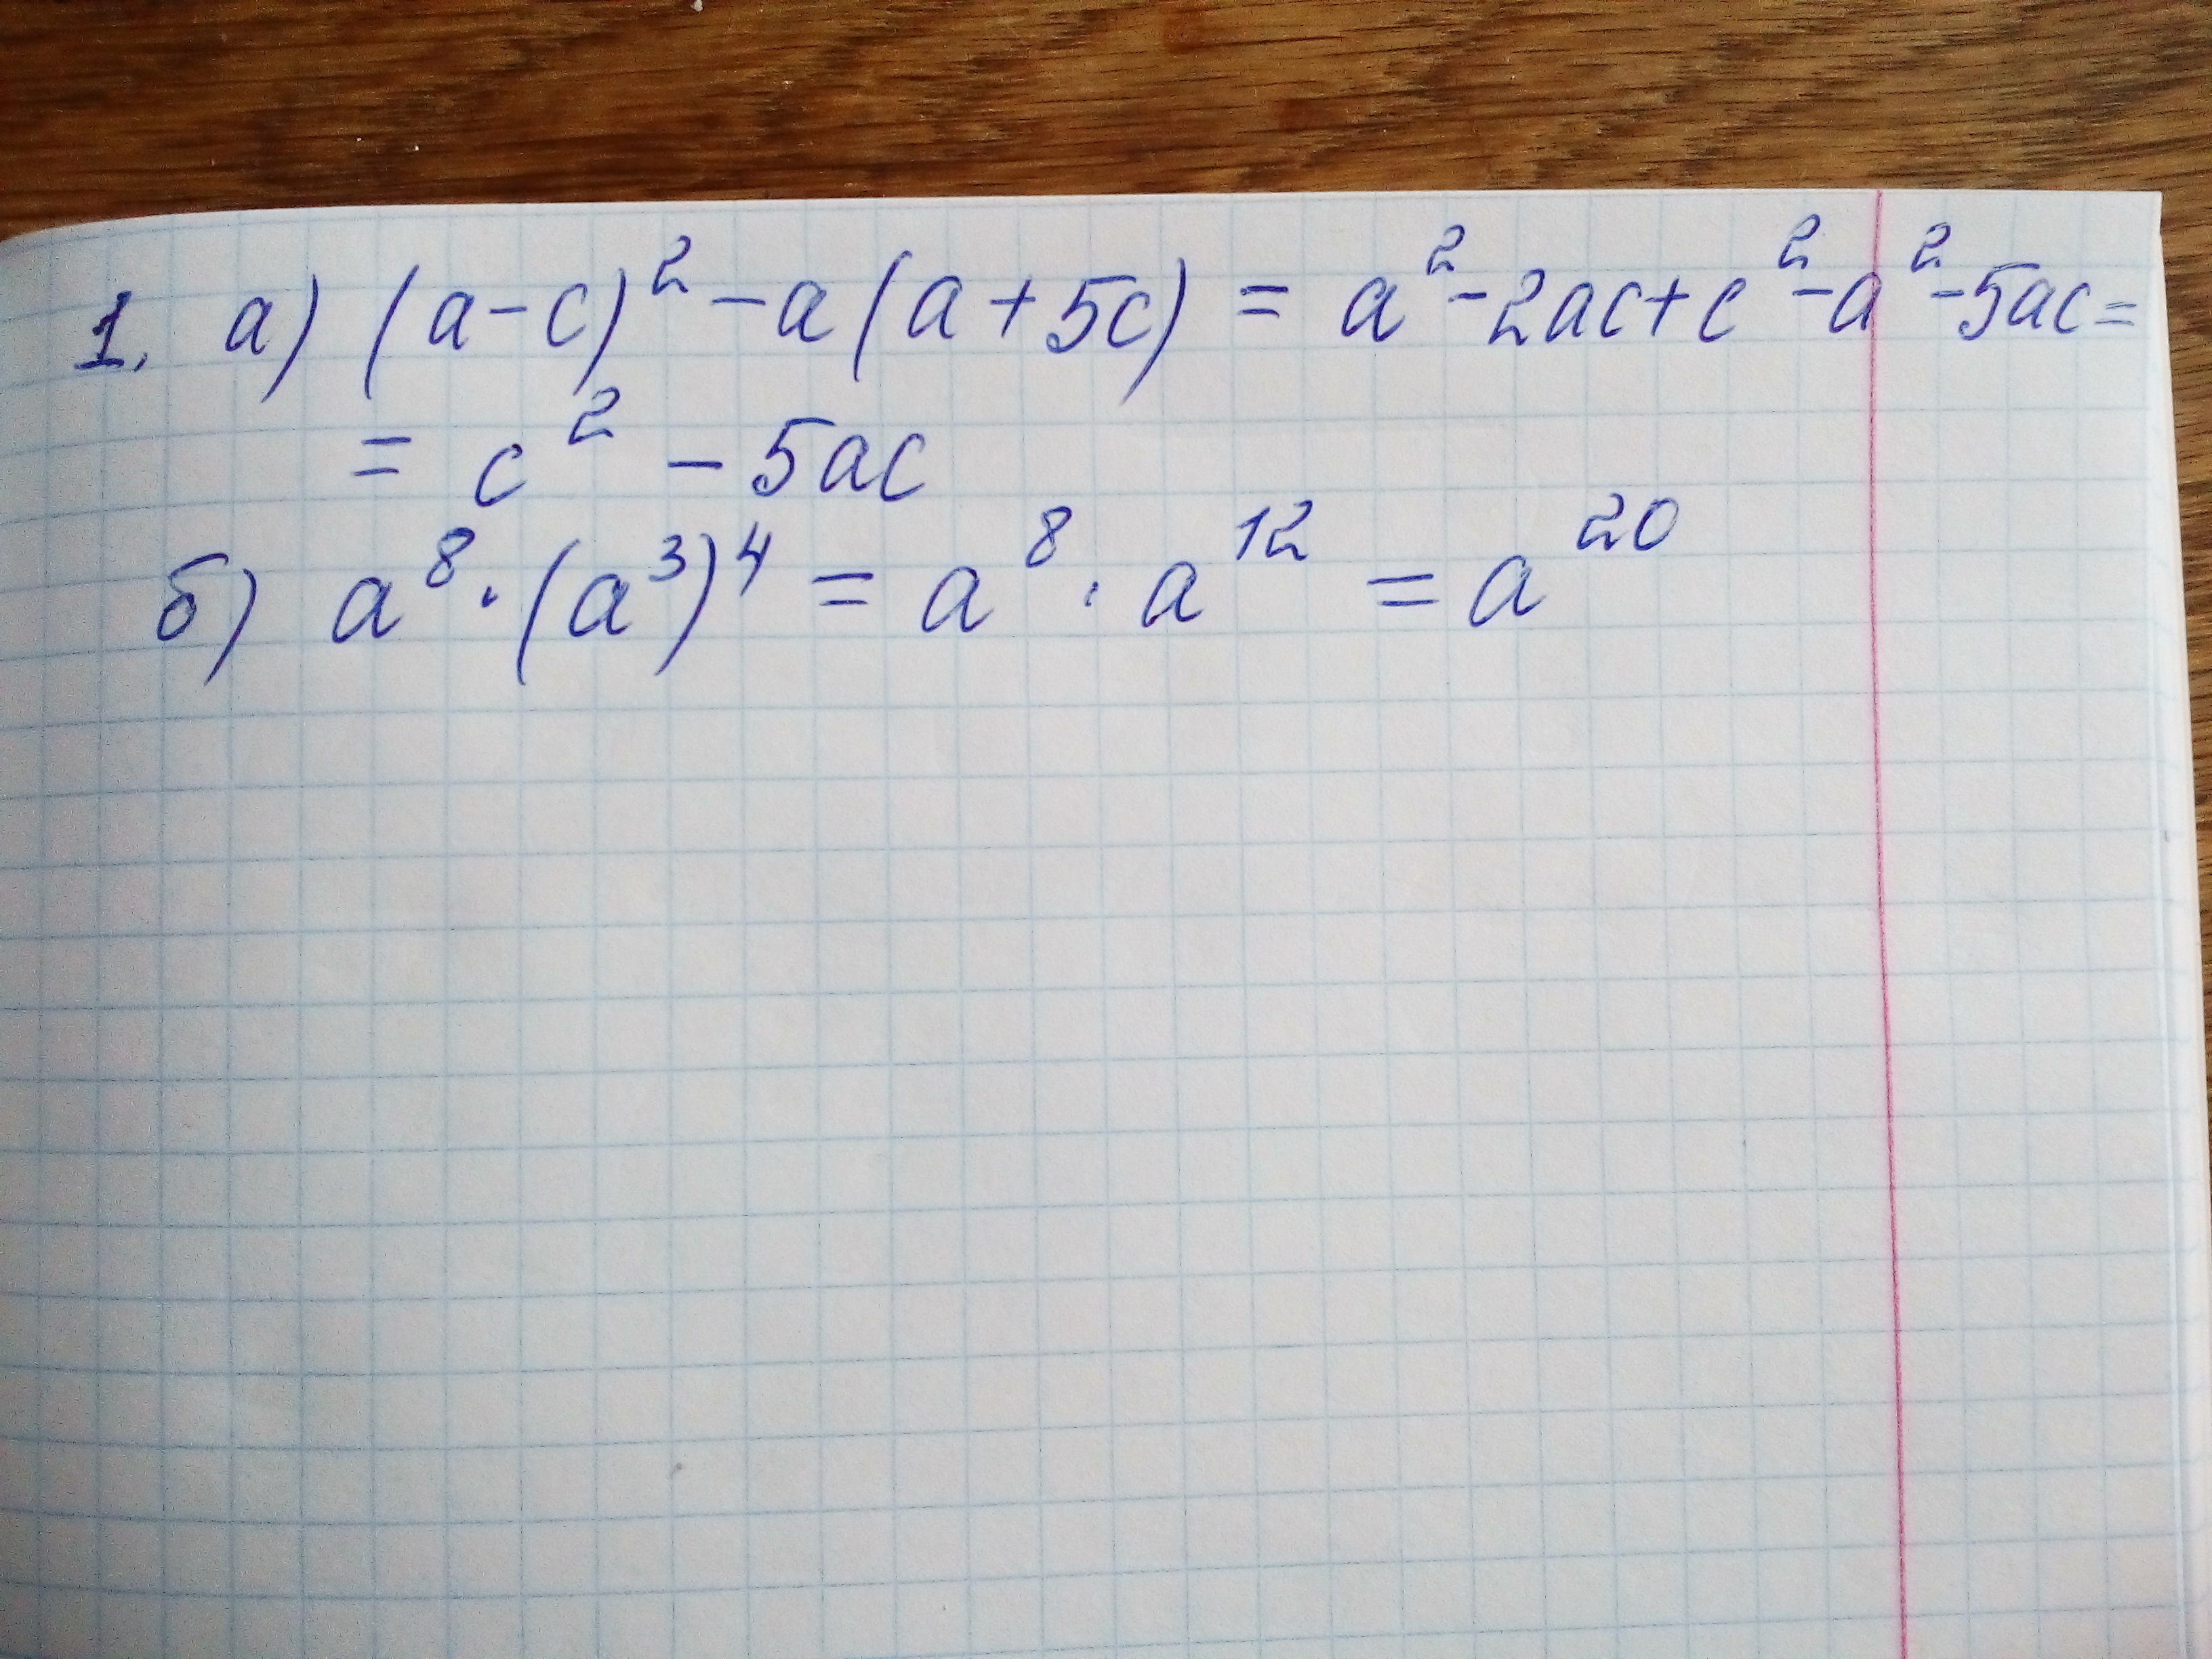 1. а) (a-c)² -a(a+5c) = a²-2ac+c²-a²-5ac=
= c² - 5ac
б) a⁸·(a³)⁴ = a⁸ · a¹² = a²⁰